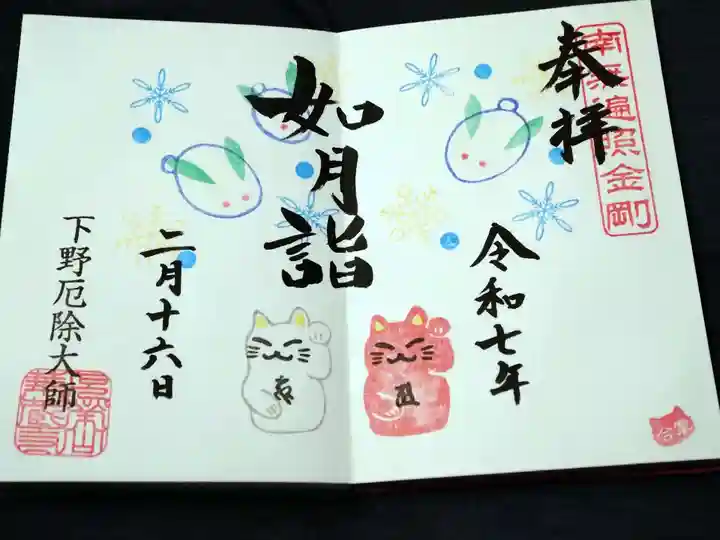 南無遍照金剛
奉拝
令和七年
如月詣
二月十六日
下野厄除大師